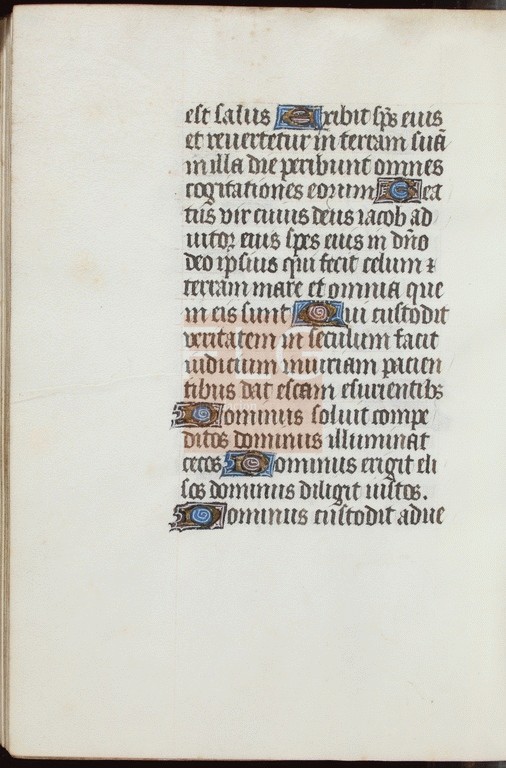 est salus Exibit sp̄s eius
et reuertetur in terram suā
in illa die peribunt omnes
cogitationes eorum Bea
tus vir cuius deus iacob ad
iutor eius spes eius in dn̄o
deo ipsius qui fecit celum ⁊
terram mare et omnia que
in eis sunt Qui custodit
veritatem in seculum facit
iudicium iniuriam pacien
tibus dat escam esurientibꝫ
Dominus soluit compe
ditos dominus illuminat
cecos Dominus erigit eli
sos dominus diligit iustos.
Dominus custodit adue